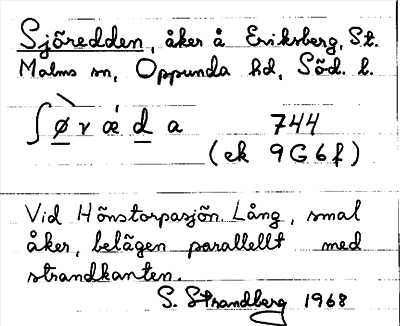 Sjöredden, åker å Eriksberg, St.
Malms sn, Oppunda hd, Söd. l.
ʃø̀ r ǽ d a 744
(ek 9G6f)
Vid Hönstorpasjön. Lång, smal
åker, belägen parallellt med
strandkanten.
S. Strandberg 1968